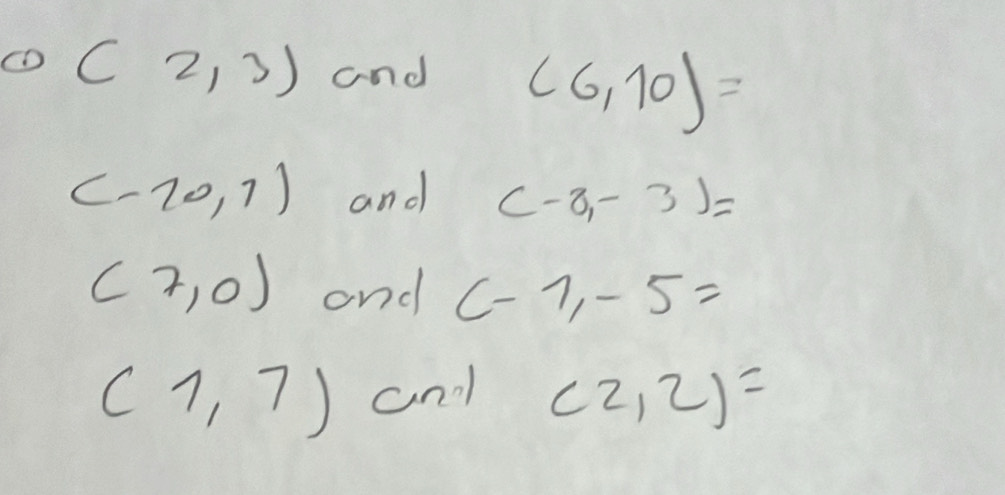 ① ( 2,3) and (6,10)=
(-10,1) and (-8,-3)=
(7,0) and (-1,-5=
(1,7) and (2,2)=